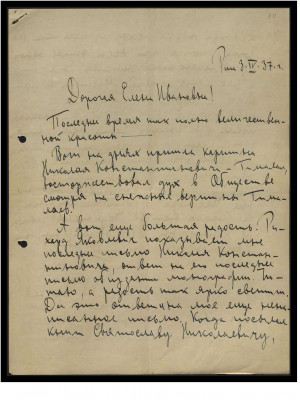 Рига 3.IV.37.г.
Дорогая Елена Ивановна!
Последнее время так полно величествен-
ной красоты
Вот на днях пришла картина
Николая Константиновича – Гималаи,
восторжествовал дух в Обществе
смотря на снежные вершины Гима-
лаев.
А вот ещё большая радость. Ри-
хард Яковлевич показывает мне
последнее письмо Николая Констан-
тиновича, ответ на его последнее
письмо об издании монографии. Чи-
таю, а радость так ярко светит.
Да это ответ на моё ещё нена-
писанное письмо. Когда посылал
книги Святославу Николаевичу,